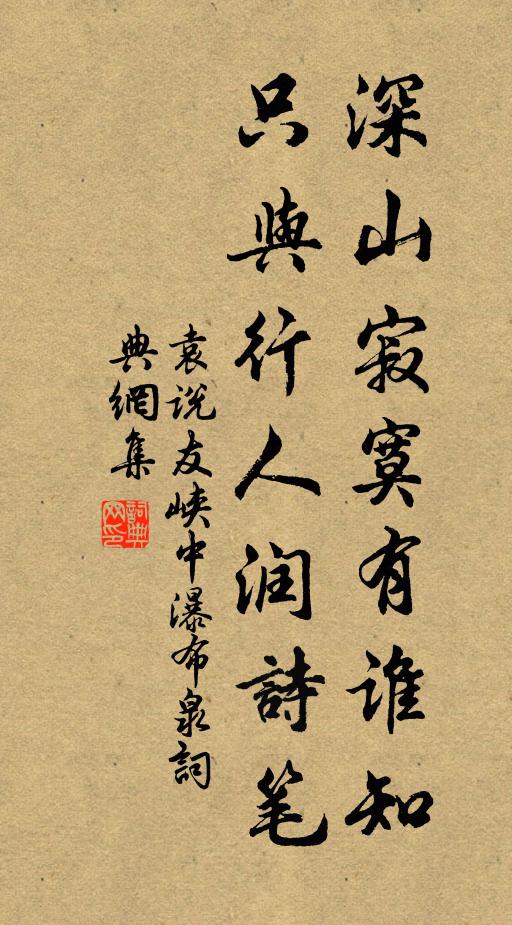 深山寂寞有谁知
只與行人润詩笔
袁说友峡中瀑布泉詞
典網集
詞典
网印